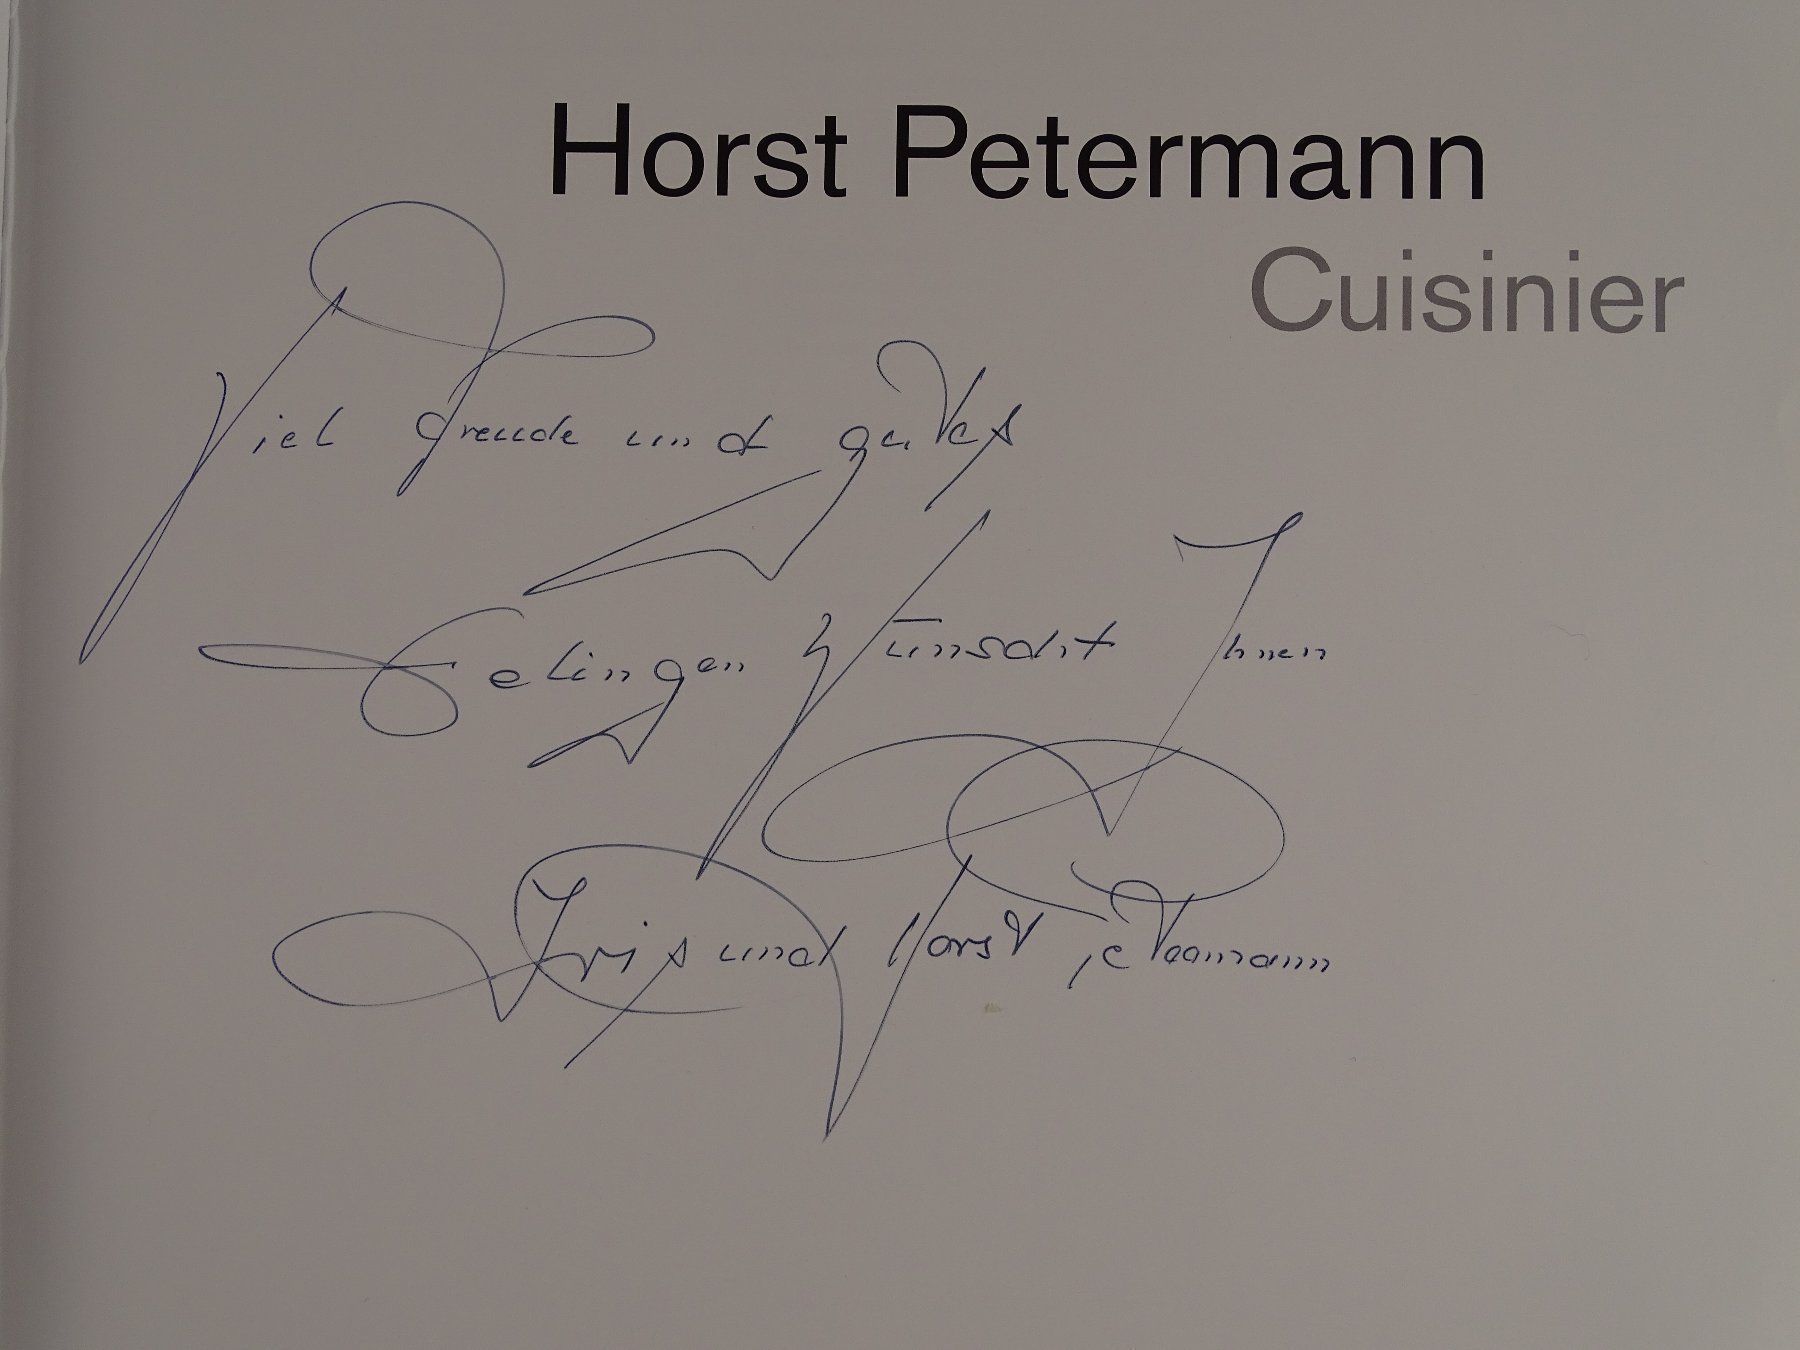 Horst Petermann
Cuisinier
Viel Freude und gutes
Gelingen wünscht Ihnen
Iris und Horst Petermann